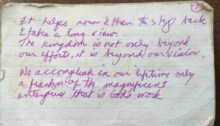 It helps now & then to step back
& take a long view.
The kingdom is not only beyond
our efforts, it is beyond our vision.
We accomplish in our lifetime only
a fraction of the magnificent
enterprise that is God's work